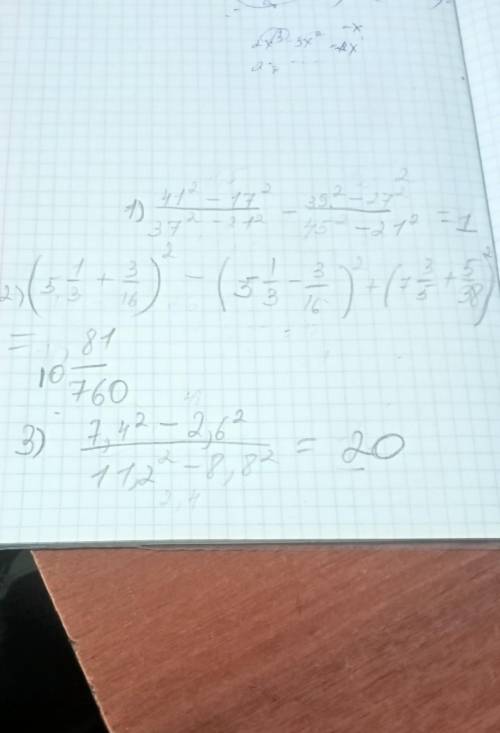 1) (41² - 17²)/(37² - 21²) - (39² - 27²)/(45² - 21²) = 1
2) (5 1/3 + 3/16)² - (5 1/3 - 3/16)² + (7 3/5 + 5/38)²
= 10 81/760
3) (7,4² - 2,6²)/(11,2² - 8,8²) = 20